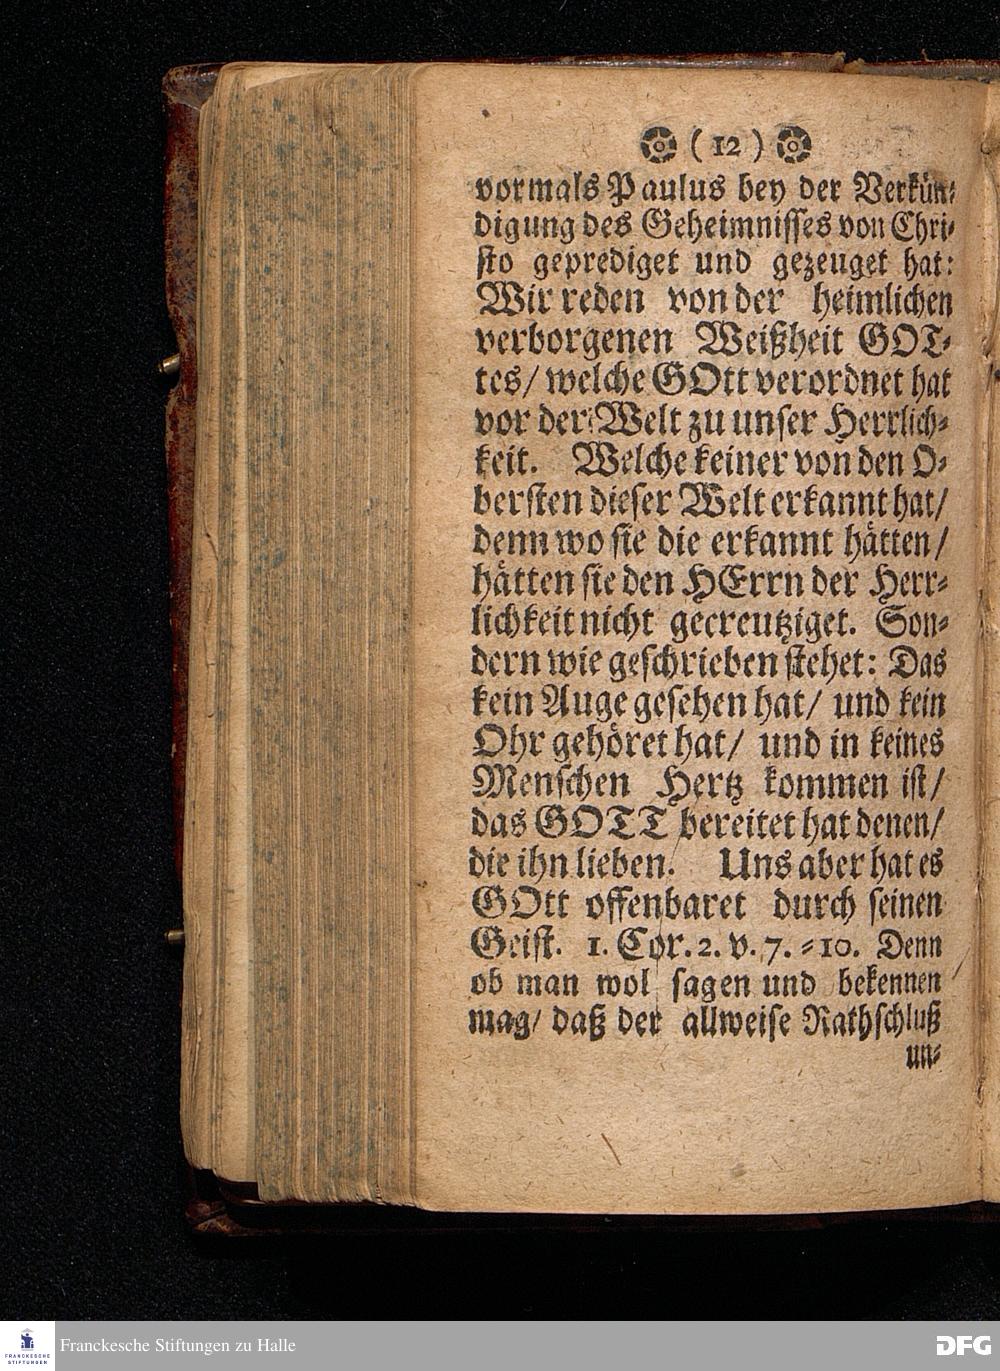 ( 12 )
vormals Paulus bey der Verkün⸗
digung des Geheimnisses von Chri⸗
sto geprediget und gezeuget hat:
Wir reden von der heimlichen
verborgenen Weißheit GOT⸗
tes/ welche GOtt verordnet hat
vor der Welt zu unser Herrlich⸗
keit. Welche keiner von den O⸗
bersten dieser Welt erkannt hat/
denn wo sie die erkannt hätten/
hätten sie den HErrn der Herr⸗
lichkeit nicht gecreutziget. Son⸗
dern wie geschrieben stehet: Das
kein Auge gesehen hat/ und kein
Ohr gehöret hat/ und in keines
Menschen Hertz kommen ist/
das GOTT bereitet hat denen/
die ihn lieben. Uns aber hat es
GOtt offenbaret durch seinen
Geist. 1. Cor. 2. v. 7. ⸗10. Denn
ob man wol sagen und bekennen
mag/ daß der allweise Rathschluß
un⸗
FRANCKESCHE
STIFTUNGEN
Franckesche Stiftungen zu Halle
DFG